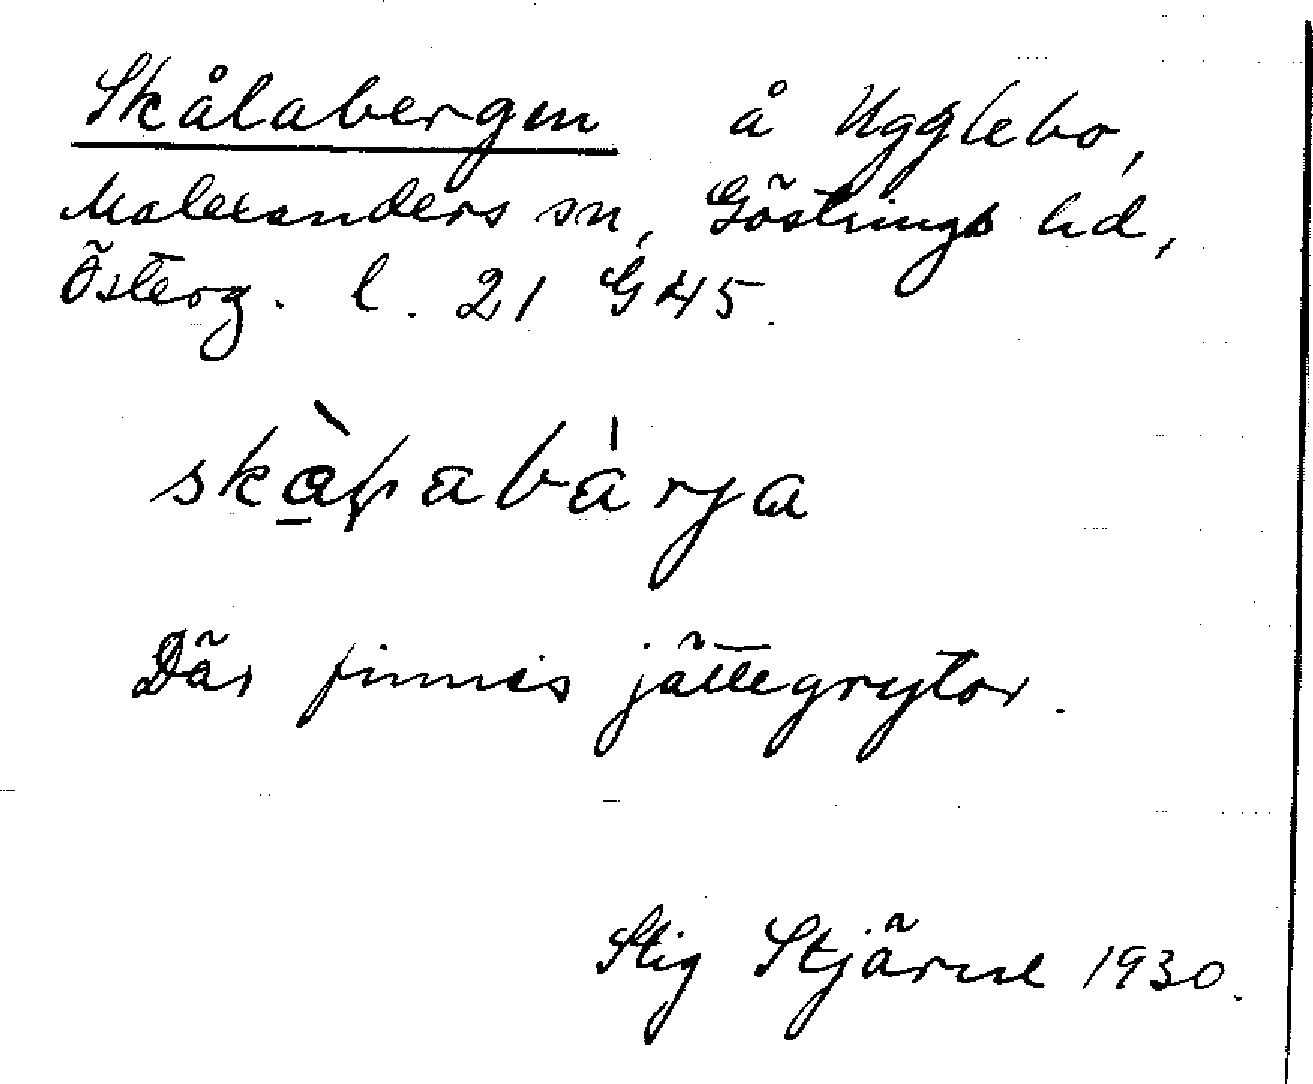 Skålabergen å Ugglebo,
Malexanders sn, Göstrings hd,
Österg. l. 21 G 45.
skà̱ɫabárja
Där finnes jättegrytor.
Stig Stjärne 1930.